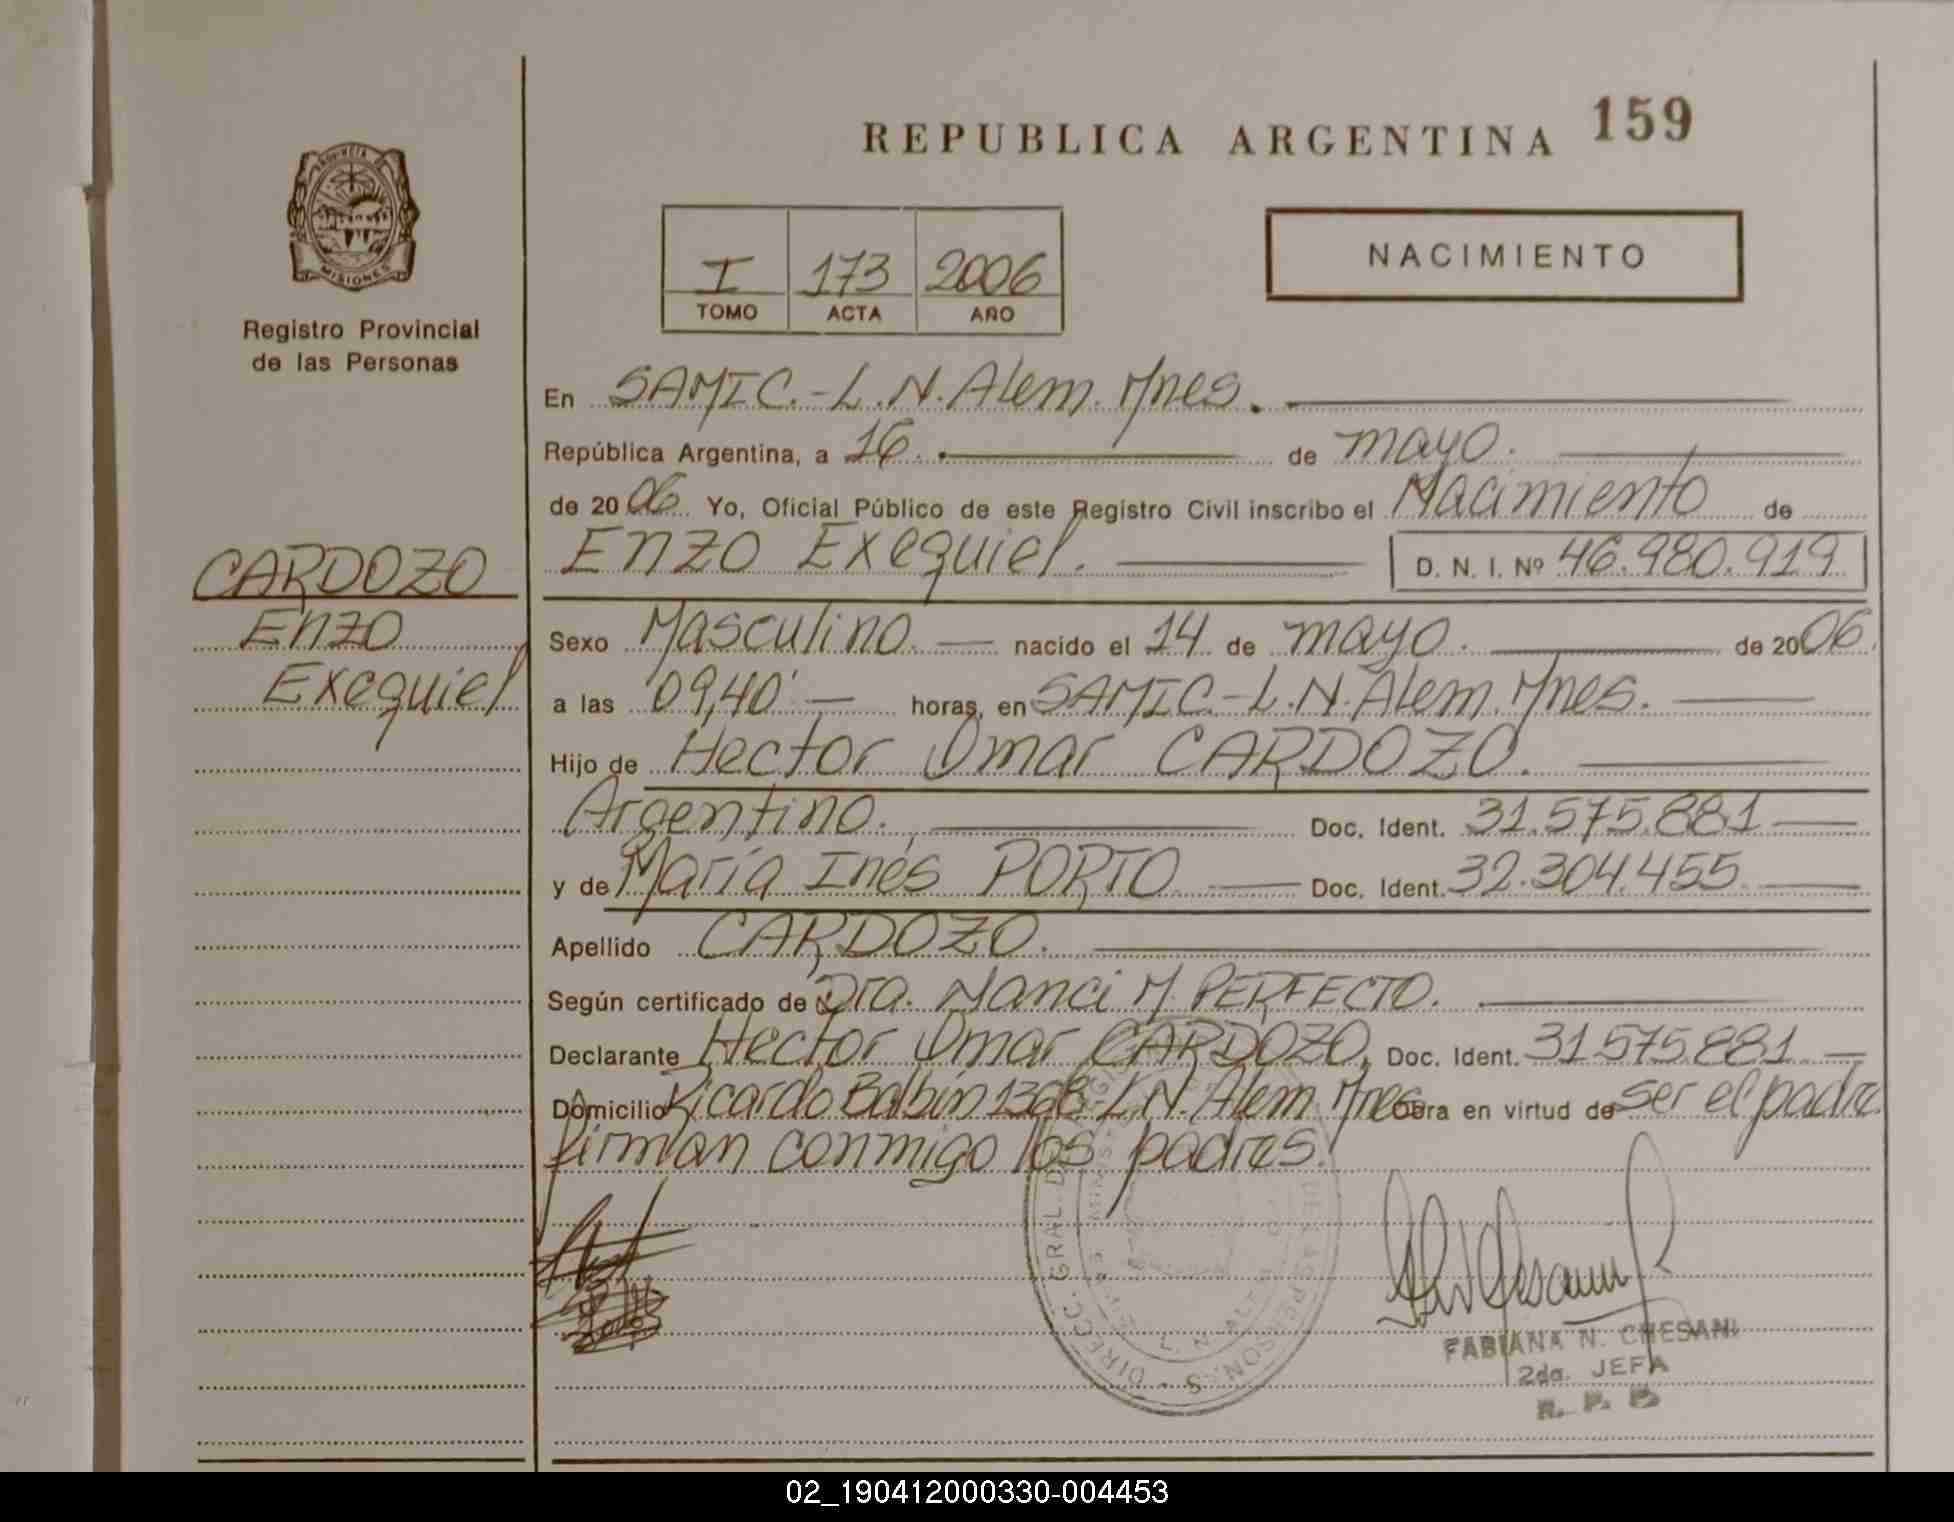 REPUBLICA ARGENTINA 159
PROVINCIA DE
MISIONES
Registro Provincial
de las Personas
I 173 2006
TOMO ACTA AÑO
NACIMIENTO
En SAMIC.-L.N.Alem.Mnes.
República Argentina, a 16. de mayo.
de 2006. Yo, Oficial Público de este Registro Civil inscribo el Nacimiento de
Enzo Exequiel. D. N. I. Nº 46.980.919
CARDOZO
Enzo
Exequiel
Sexo Masculino. nacido el 14 de mayo. de 2006.
a las 09,40' horas, en SAMIC.-L.N.Alem.Mnes.
Hijo de Hector Omar CARDOZO.
Argentino. Doc. Ident. 31.575.881
y de María Inés PORTO Doc. Ident. 32.304.455
Apellido CARDOZO.
Según certificado de Dra. Nanci M. PERFECTO.
Declarante Hector Omar CARDOZO, Doc. Ident. 31575.881
Domicilio Ricardo Balbín L.N.Alem.Mnes Obra en virtud de ser el padre
firman conmigo los padres.
DIRECC. GRAL. DE LAS PERSONAS
L. N. ALEM
FABIANA N. CHESANI
2da. JEFA
R. P. P.
02_190412000330-004453